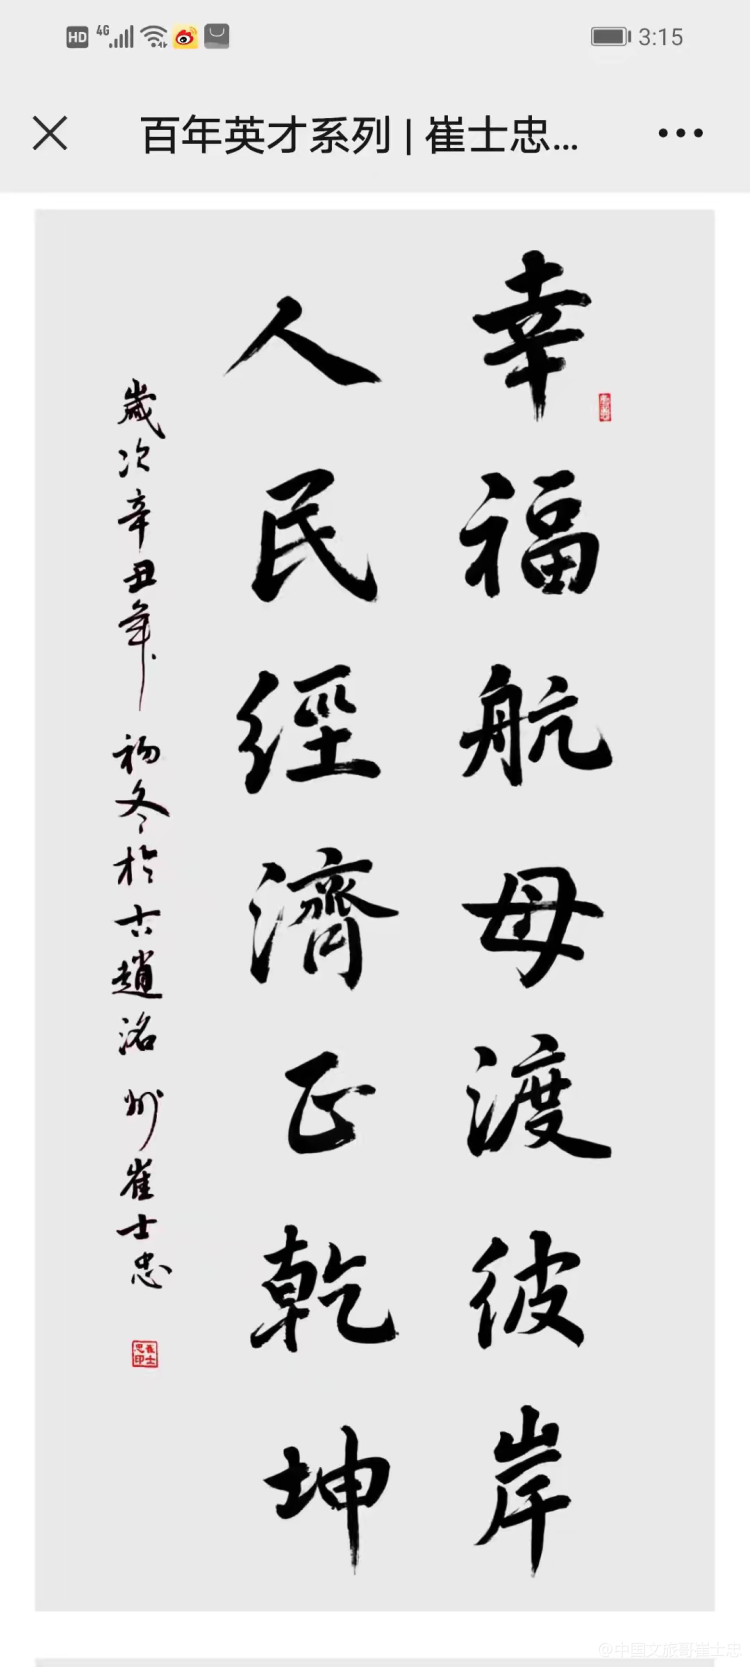 HD 4G 3:15
百年英才系列 | 崔士忠...
幸福航母渡彼岸
人民經濟正乾坤
歲次辛丑年初冬於古趙洺州崔士忠
崔士忠印
@中国文旅哥崔士忠